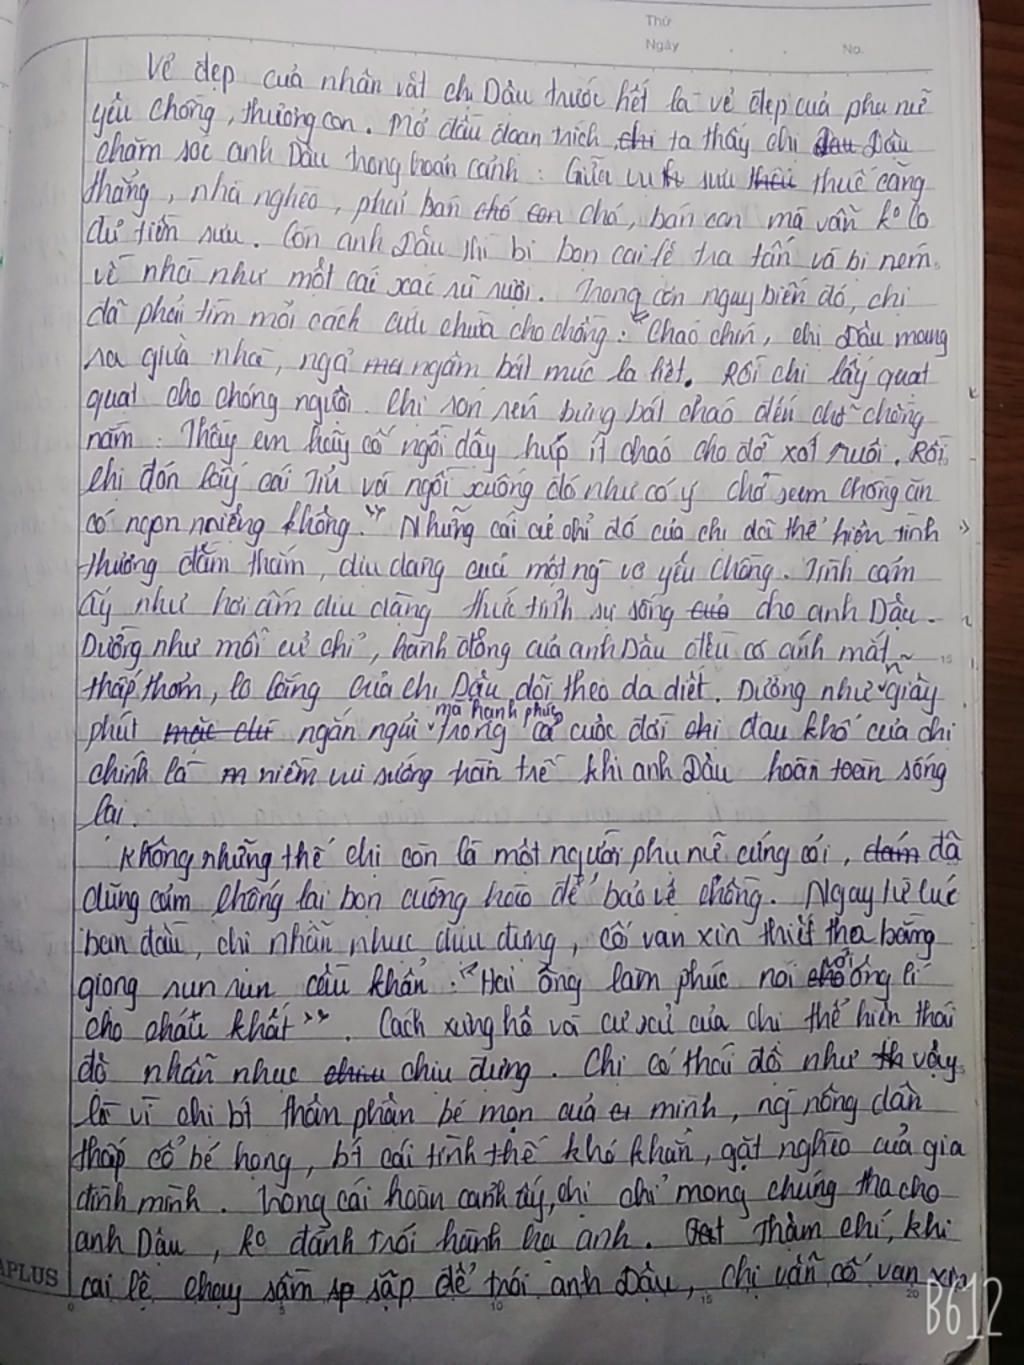 Thứ
Ngày . . No.
Vẻ đẹp của nhân vật chị Dậu trước hết là vẻ đẹp của phụ nữ
yêu chồng, thương con. Mở đầu đoạn trích, chị ta thấy chị dau Dậu
chăm sóc anh Dậu trong hoàn cảnh: Giữa vụ sưu thuế căng
thẳng, nhà nghèo, phải bán chó con chó, bán con mà vẫn ko lo
đủ tiền sưu. Còn anh Dậu thì bị bọn cai lệ tra tấn và bị ném
về nhà như một cái xác rũ rượi. Trong cơn nguy biến đó, chị
đã phải tìm mọi cách cứu chữa cho chồng: "Cháo chín, chị Dậu mang
ra giữa nhà, ngả mâ ngâm bát múc la liệt. Rồi chị lấy quạt
quạt cho chóng nguội. Chị rón rén bưng bát cháo đến chỗ chồng
nằm: Thầy em hãy cố ngồi dậy húp ít cháo cho đỡ xót ruột. Rồi
chị đón lấy cái Tỉu và ngồi xuống đó như có ý chờ xem chồng ăn
có ngon miệng không." Những cái cử chỉ đó của chị đã thể hiện tình
thương đằm thắm, dịu dàng của một ng vợ yêu chồng. Tình cảm
ấy như hơi ấm dịu dàng thức tỉnh sự sống của cho anh Dậu.
Dường như mỗi cử chỉ, hành động của anh Dậu đều có ánh mắt
thấp thỏm, lo lắng của chị Dậu dõi theo da diết. Dường như giây
phút ngắn ngủi mà hạnh phúc trong cả cuộc đời chị đau khổ của chị
chính là niềm vui sướng tràn trề khi anh Dậu hoàn toàn sống
lại.
Không những thế chị còn là một người phụ nữ cứng cỏi, dám đã
dũng cảm chống lại bọn cường hào để bảo vệ chồng. Ngay từ lúc
ban đầu, chị nhẫn nhục chịu đựng, cố van xin thiết tha bằng
giọng run run cầu khẩn: "Hai ông làm phúc nói với ông lí
cho cháu khất". Cách xưng hô và cư xử của chị thể hiện thái
độ nhẫn nhục chịu đựng. Chị có thái độ như th vậy
là vì chị bt thân phận bé mọn của mình, ng nông dân
thấp cổ bé họng, bt cái tình thế khó khăn, gặt nghèo của gia
đình mình. Trong cái hoàn cảnh ấy, chị chỉ mong chúng tha cho
anh Dậu, ko đánh trói hành hạ anh. Thậm chí, khi
cai lệ chạy sầm sp sập để trói anh Dậu, chị vẫn cố van xin
APLUS
0 5 10 15 20
15
B612